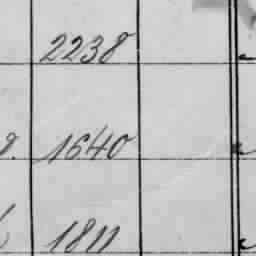 2238
1640
1811